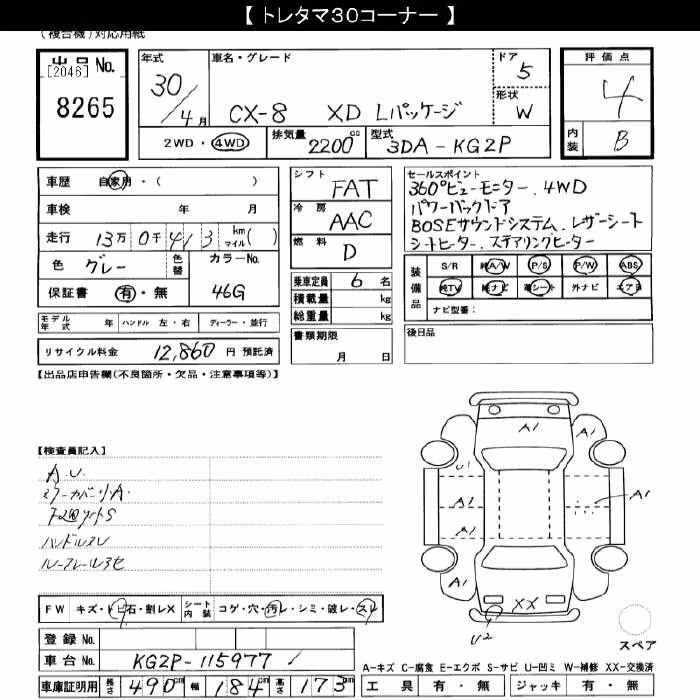 【 トレタマ30コーナー 】
(複合機)対応用紙
出品 No.
[2046]
8265
年式 30/4月
車名・グレード
CX-8 XD Lパッケージ
ドア 5
形状 W
評価点 4
内装 B
2WD・4WD
排気量 2200 cc
型式 3DA-KG2P
車歴 自家用・( )
車検 年 月
走行 13万0千413 km マイル( )
色 グレー 色替 カラーNo.
保証書 有・無 46G
シフト FAT
冷房 AAC
燃料 D
乗車定員 6 名
積載量 kg
総重量 kg
セールスポイント
360°ビューモニター、4WD
パワーバックドア
BOSEサウンドシステム、レザーシート
シートヒーター、ステアリングヒーター
装備品 S/R 純A/W P/S P/W ABS
純TV 純ナビ 革シート 外ナビ エアB
ナビ型番:
モデル年式 年 ハンドル 左・右 ディーラー・並行
リサイクル料金 12,860 円 預託済
書類期限
月 日
後日品
【出品店申告欄(不良箇所・欠品・注意事項等)】
【検査員記入】
A.U.
ハンドルスレ
A1
A1 A1
U1
A1 A1
A1
A1
XX
U2
FW キズ・トビ石・割レX シート内装 コゲ・穴・汚レ・シミ・破レ・スレ
登録 No.
車台 No. KG2P-115977
車庫証明用 長さ 490 cm 幅 184 cm 高さ 173 cm
スペア
A-キズ C-腐食 E-エクボ S-サビ U-凹ミ W-補修 XX-交換済
工具 有・無 ジャッキ 有・無